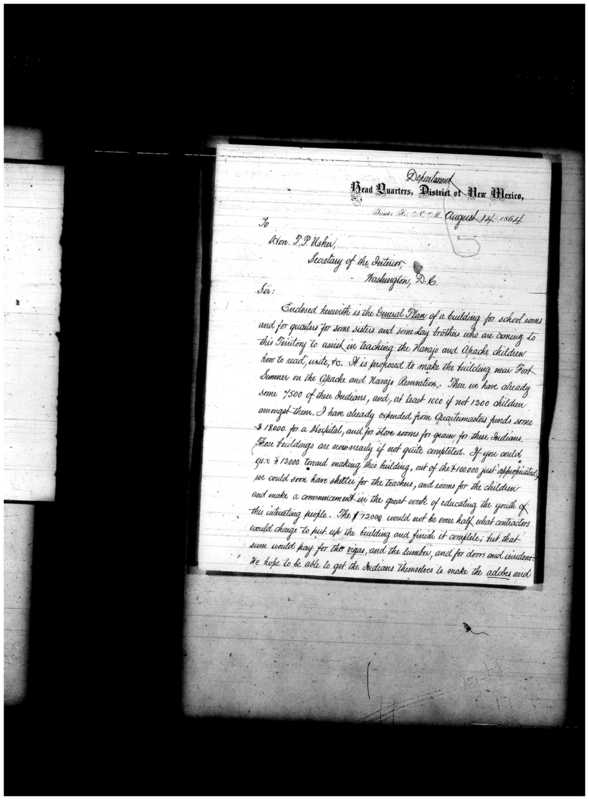 Department
Head Quarters, District of New Mexico,
Santa Fe, N. M. August 14, 1864
To
Hon. J. P. Usher,
Secretary of the Interior,
Washington, D. C.
Sir:
Enclosed herewith is the General Plan of a building for school rooms
and for quarters for some sisters and some lay brothers who are coming to
this Territory to assist in teaching the Navajo and Apache children
how to read, write, &c. It is proposed to make the building near Fort
Sumner on the Apache and Navajo Reservation. There we have already
some 7,500 of these Indians, and, at least 1000 if not 1200 children
amongst them. I have already expended from Quartermasters funds some
$18000 for a Hospital, and for store rooms for grain for these Indians.
These buildings are now nearly if not quite completed. If you could
give $12000 toward making this building, out of the $100000 just appropriated,
we could soon have shelter for the teachers, and rooms for the children
and make a commencement in the great work of educating the youth of
this interesting people. The $12000 would not be one half what contractors
would charge to put up the building and finish it complete, but that
sum would pay for the vigas, and the lumber, and for doors and windows.
We hope to be able to get the Indians themselves to make the adobes and